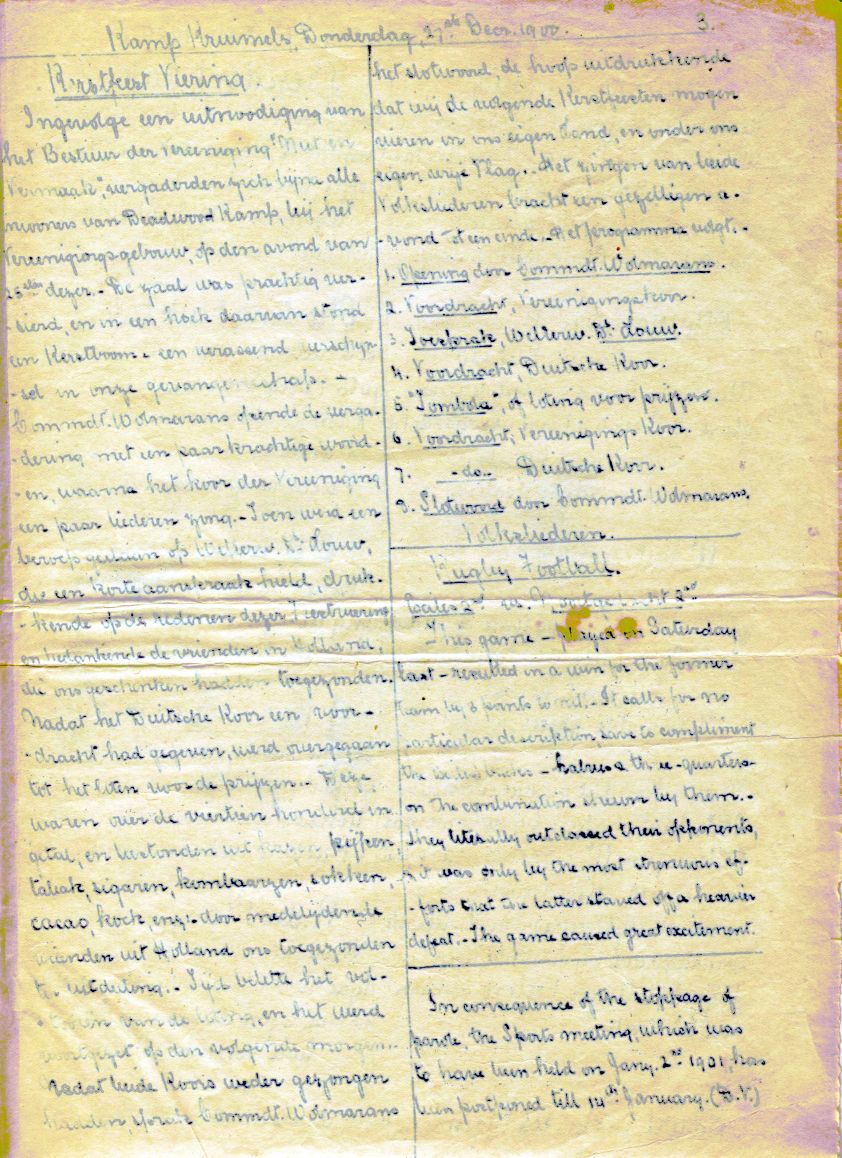 Kamp Kruimels, Donderdag, 27ste Decr. 1900. 3.
Kerstfeest Viering.
Ingevolge een uitnoodiging van
het Bestuur der Vereeniging "Nut en
Vermaak", vergaderden zich bijna alle
inwoners van Deadwood Kamp, bij het
Vereenigingsgebouw, op den avond van
25sten dezer. - De zaal was prachtig ver-
-sierd, en in een hoek daarvan stond
een Kerstboom - een verassend verschijn-
-sel in onze gevangenschap. -
Commdt. Wolmarans opende de verga-
-dering met een paar krachtige woord-
-en, waarna het koor der Vereeniging
een paar liederen zong. - Toen werd een
beroep gedaan op WelEerw. Ds. Louw,
die een korte aanspraak hield, druk-
-kende op de redenen dezer feestviering
en bedankende de vrienden in Holland,
die ons geschenken hadden toegezonden.
Nadat het Duitsche Koor een voor-
-dracht had gegeven, werd overgegaan
tot het loten voor de prijzen. - Deze
waren over de viertien honderd in
getal, en bestonden uit pijpen,
tabak, sigaren, kombaarzen, sokken,
cacao, koek, enz. door medelijdende
vrienden uit Holland ons toegezonden
ter uitdeling. - Tijd belette het vol-
-tooien van de loting, en het werd
voortgezet op den volgende morgen.
Nadat beide Koors weder gezongen
hadden, sprak Commdt. Wolmarans
het slotwoord, de hoop uitdrukkende
dat wij de volgende Kerstfeesten mogen
vieren in ons eigen Land, en onder ons
eigen vrije Vlag. - Het zingen van beide
Volksliederen bracht een gezelligen a-
-vond tot een einde. - Het programma volgt. -
1. Opening door Commdt. Wolmarans.
2. Voordracht, Vereenigingskoor.
3. Toespraak, WelEerw. Ds. Louw.
4. Voordracht, Duitsche Koor.
5. "Tombola", of loting voor prijzen.
6. Voordracht, Vereenigings Koor.
7. -do- Duitsche Koor.
8. Slotwoord door Commdt. Wolmarans.
Volksliederen.
Rugby Football.
2nd vs. 2nd
This game - played on Saturday
last - resulted in a win for the former
team by 3 points to nil. - It calls for no
particular description, save to compliment
the backs - halves & three-quarters -
on the combination shewn by them. -
They literally outclassed their opponents,
& it was only by the most strenuous ef-
-forts that the latter staved off a heavier
defeat. - The game caused great excitement.
In consequence of the stoppage of
parole, the Sports meeting, which was
to have been held on Jany. 2nd 1901, has
been postponed till 14th January. (D.V.)